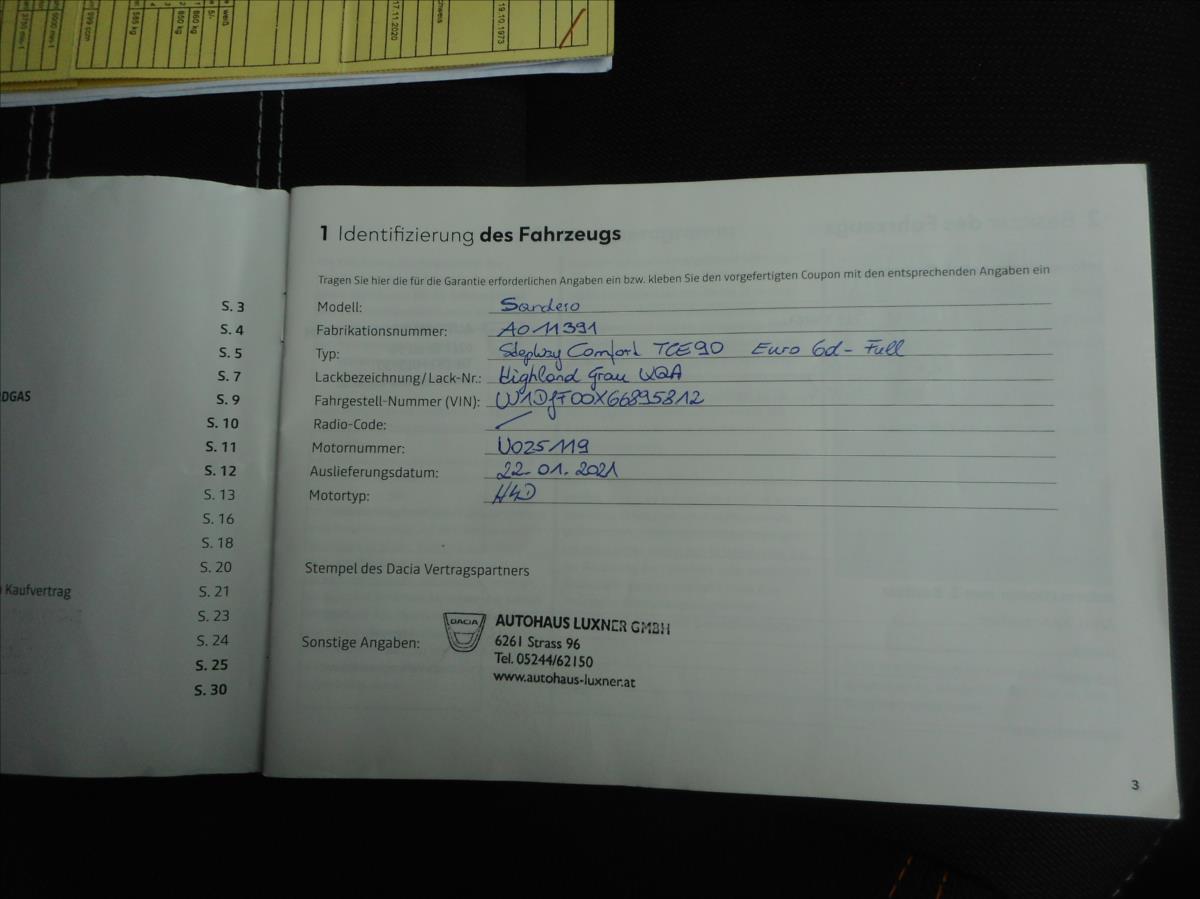 19.10.1973
17.11.2020
weiß
5/-
860 kg
850 kg
585 kg
999 ccm
5000 min-1
3750 min-1
DGAS
Kaufvertrag
S. 3
S. 4
S. 5
S. 7
S. 9
S. 10
S. 11
S. 12
S. 13
S. 16
S. 18
S. 20
S. 21
S. 23
S. 24
S. 25
S. 30
1 Identifizierung des Fahrzeugs
Tragen Sie hier die für die Garantie erforderlichen Angaben ein bzw. kleben Sie den vorgefertigten Coupon mit den entsprechenden Angaben ein
Modell: Sandero
Fabrikationsnummer: A011391
Typ: Stepway Comfort TCE90 Euro 6d-Full
Lackbezeichnung/Lack-Nr.: Highland Grau KQA
Fahrgestell-Nummer (VIN):
Radio-Code:
Motornummer: U025119
Auslieferungsdatum: 22.01.2021
Motortyp: H4D
Stempel des Dacia Vertragspartners
Sonstige Angaben:
DACIA
AUTOHAUS LUXNER GMBH
6261 Strass 96
Tel. 05244/62150
www.autohaus-luxner.at
3